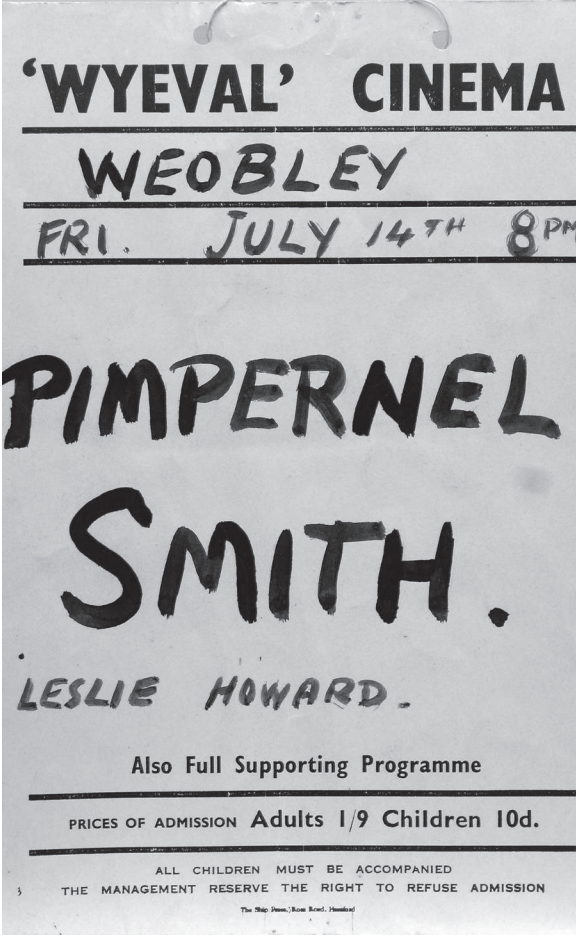 ‘WYEVAL’ CINEMA
WEOBLEY
FRI. JULY 14TH 8PM
PIMPERNEL
SMITH.
LESLIE HOWARD.
Also Full Supporting Programme
PRICES OF ADMISSION Adults 1/9 Children 10d.
ALL CHILDREN MUST BE ACCOMPANIED
THE MANAGEMENT RESERVE THE RIGHT TO REFUSE ADMISSION
The Ship Press, Ross Road, Hereford